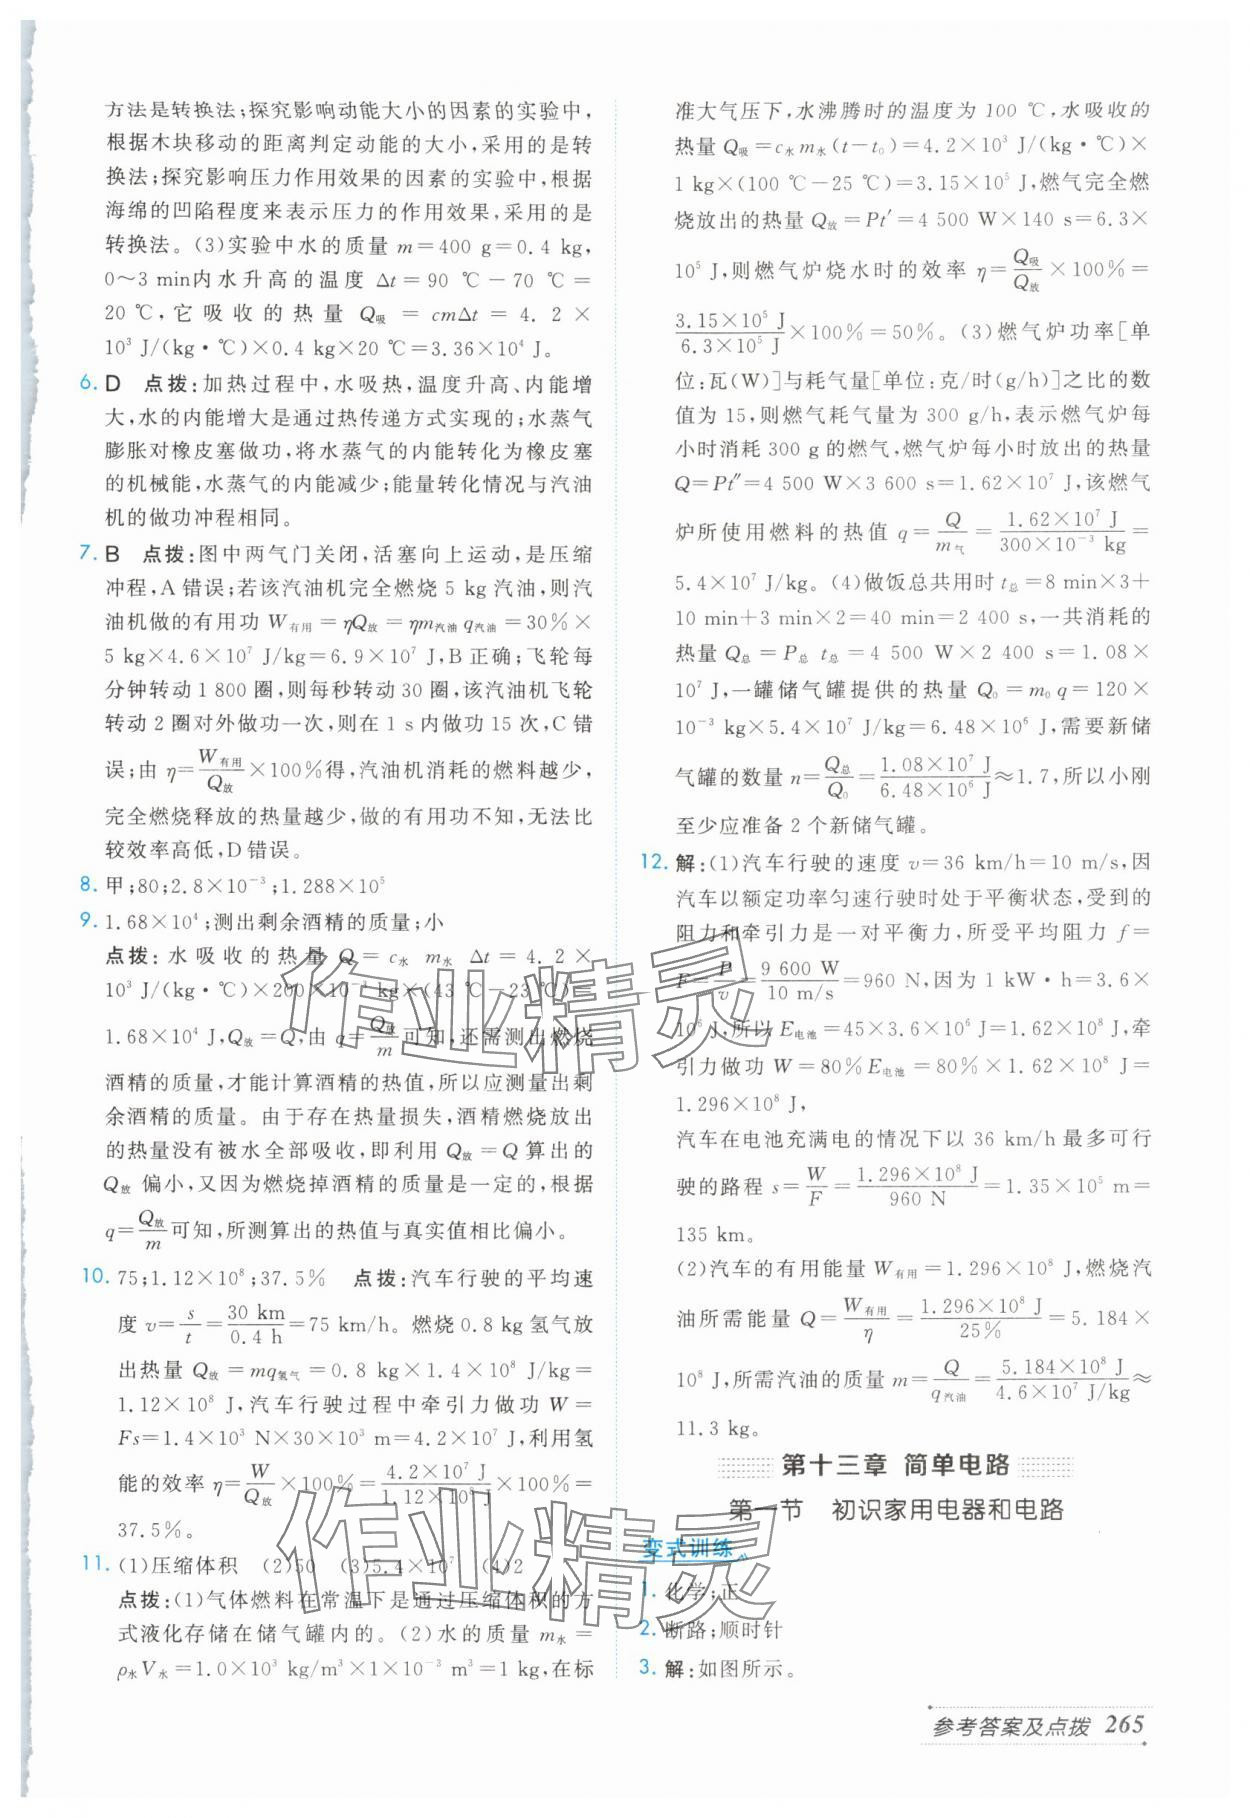 方法是转换法;探究影响动能大小的因素的实验中,
根据木块移动的距离判定动能的大小,采用的是转
换法;探究影响压力作用效果的因素的实验中,根据
海绵的凹陷程度来表示压力的作用效果,采用的是
转换法。(3)实验中水的质量 m=400 g=0.4 kg,
0～3 min内水升高的温度 Δt=90 ℃-70 ℃=
20 ℃,它吸收的热量 Q吸=cmΔt=4.2×
10³ J/(kg·℃)×0.4 kg×20 ℃=3.36×10⁴ J。
6. D 点拨:加热过程中,水吸热,温度升高、内能增
大,水的内能增大是通过热传递方式实现的;水蒸气
膨胀对橡皮塞做功,将水蒸气的内能转化为橡皮塞
的机械能,水蒸气的内能减少;能量转化情况与汽油
机的做功冲程相同。
7. B 点拨:图中两气门关闭,活塞向上运动,是压缩
冲程,A错误;若该汽油机完全燃烧 5 kg 汽油,则汽
油机做的有用功 W有用=ηQ放=ηm汽油q汽油=30%×
5 kg×4.6×10⁷ J/kg=6.9×10⁷ J,B正确;飞轮每
分钟转动1 800圈,则每秒转动30圈,该汽油机飞轮
转动2圈对外做功一次,则在1 s内做功15次,C错
误;由 η=W有用/Q放×100%得,汽油机消耗的燃料越少,
完全燃烧释放的热量越少,做的有用功不知,无法比
较效率高低,D错误。
8. 甲;80;2.8×10⁻³;1.288×10⁵
9. 1.68×10⁴;测出剩余酒精的质量;小
点拨:水吸收的热量 Q=c水 m水 Δt=4.2×
10³ J/(kg·℃)×200×10⁻³ kg×(43 ℃-23 ℃)=
1.68×10⁴ J,Q放=Q,由 q=Q放/m可知,还需测出燃烧
酒精的质量,才能计算酒精的热值,所以应测量出剩
余酒精的质量。由于存在热量损失,酒精燃烧放出
的热量没有被水全部吸收,即利用 Q放=Q 算出的
Q放 偏小,又因为燃烧掉酒精的质量是一定的,根据
q=Q放/m可知,所测算出的热值与真实值相比偏小。
10. 75;1.12×10⁸;37.5% 点拨:汽车行驶的平均速
度 v=s/t=30 km/0.4 h=75 km/h。燃烧0.8 kg氢气放
出热量 Q放=mq氢气=0.8 kg×1.4×10⁸ J/kg=
1.12×10⁸ J,汽车行驶过程中牵引力做功 W=
Fs=1.4×10³ N×30×10³ m=4.2×10⁷ J,利用氢
能的效率 η=W/Q放×100%=4.2×10⁷ J/1.12×10⁸ J×100%=
37.5%。
11. (1)压缩体积 (2)50 (3)5.4×10⁷ (4)2
点拨:(1)气体燃料在常温下是通过压缩体积的方
式液化存储在储气罐内的。(2)水的质量 m水=
ρ水V水=1.0×10³ kg/m³×1×10⁻³ m³=1 kg,在标
准大气压下,水沸腾时的温度为100 ℃,水吸收的
热量 Q吸=c水m水(t-t₀)=4.2×10³ J/(kg·℃)×
1 kg×(100 ℃-25 ℃)=3.15×10⁵ J,燃气完全燃
烧放出的热量 Q放=Pt′=4 500 W×140 s=6.3×
10⁵ J,则燃气炉烧水时的效率 η=Q吸/Q放×100%=
3.15×10⁵ J/6.3×10⁵ J×100%=50%。(3)燃气炉功率[单
位:瓦(W)]与耗气量[单位:克/时(g/h)]之比的数
值为15,则燃气耗气量为300 g/h,表示燃气炉每
小时消耗300 g的燃气,燃气炉每小时放出的热量
Q=Pt″=4 500 W×3 600 s=1.62×10⁷ J,该燃气
炉所使用燃料的热值 q=Q/m气=1.62×10⁷ J/300×10⁻³ kg=
5.4×10⁷ J/kg。(4)做饭总共用时 t总=8 min×3+
10 min+3 min×2=40 min=2 400 s,一共消耗的
热量 Q总=P总 t总=4 500 W×2 400 s=1.08×
10⁷ J,一罐储气罐提供的热量 Q₀=m₀q=120×
10⁻³ kg×5.4×10⁷ J/kg=6.48×10⁶ J,需要新储
气罐的数量 n=Q总/Q₀=1.08×10⁷ J/6.48×10⁶ J≈1.7,所以小刚
至少应准备2个新储气罐。
12. 解:(1)汽车行驶的速度 v=36 km/h=10 m/s,因
汽车以额定功率匀速行驶时处于平衡状态,受到的
阻力和牵引力是一对平衡力,所受平均阻力 f=
F=P/v=9 600 W/10 m/s=960 N,因为1 kW·h=3.6×
10⁶ J,所以 E电池=45×3.6×10⁶ J=1.62×10⁸ J,牵
引力做功 W=80%E电池=80%×1.62×10⁸ J=
1.296×10⁸ J,
汽车在电池充满电的情况下以36 km/h最多可行
驶的路程 s=W/F=1.296×10⁸ J/960 N=1.35×10⁵ m=
135 km。
(2)汽车的有用能量 W有用=1.296×10⁸ J,燃烧汽
油所需能量 Q=W有用/η=1.296×10⁸ J/25%=5.184×
10⁸ J,所需汽油的质量 m=Q/q汽油=5.184×10⁸ J/4.6×10⁷ J/kg≈
11.3 kg。
第十三章 简单电路
第一节 初识家用电器和电路
变式训练
1. 化学;正
2. 断路;顺时针
3. 解:如图所示。
参考答案及点拨 265
作业精灵
作业精灵